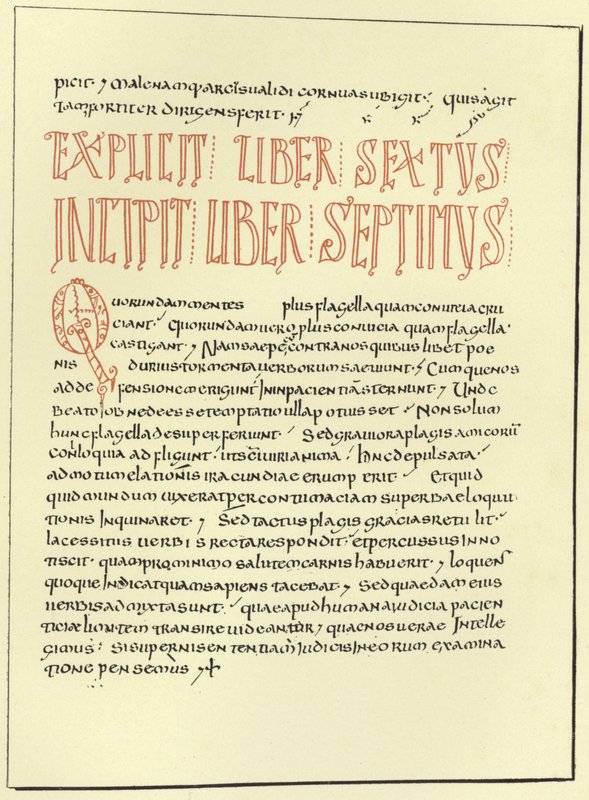 picit. Malenamq; arcus ualidi cornua subigit. quis agit
tam fortiter dirigens ferit.
EXPLICIT LIBER SEXTUS
INCIPIT LIBER SEPTIMUS
Quorundam mentes plus flagella quam conuicia cru
ciant. Quorundam uero plus conuicia quam flagella
castigant. Nam saepe contra nos quibuslibet poe
nis durius tormenta uerborum saeuiunt. Cumque nos
ad defensionem erigunt Inpacientiā sternunt. Unde
Beato iob ne deesset temptatio ulla potius set. Non solum
hunc flagella desuper feriunt. Sed grauiora plagis amicorū
conloquia adfligunt. ut scī uiri anima. hinc de pulsata.
ad motum elationis iracundiae erumperit. Et quid
quid mundum uixerat per contumaciam superbae loqui
tionis Inquinaret. Sed tactus plagis gracias retulit.
lacessitus uerbis recta respondit. et percussus inno
tiscit. quam pro minimo salutem carnis habuerit. loquens
quoque Indicat quam sapiens tacebat. Sed quaedam eius
uerbis admyxta sunt. quae apud humana iudicia pacien
ticiae limitem transire uideantur quae nos uerae Intelle
gimus. si superni sententiam Iudicis In eorum examina
tione pensemus